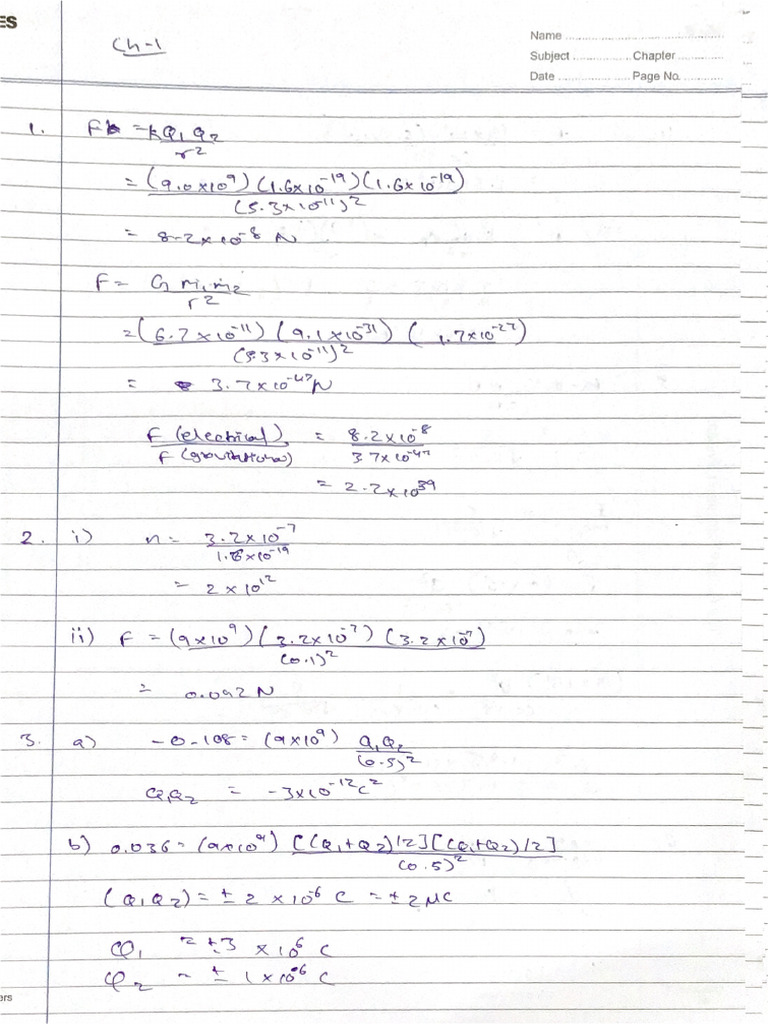 ES
Ch-1
Name
Subject Chapter
Date Page No.
1. F = kQ₁Q₂ / r²
= (9.0×10⁹)(1.6×10⁻¹⁹)(1.6×10⁻¹⁹) / (5.3×10⁻¹¹)²
= 8.2×10⁻⁸ N
F = G m₁m₂ / r²
= (6.7×10⁻¹¹)(9.1×10⁻³¹)(1.7×10⁻²⁷) / (5.3×10⁻¹¹)²
= 3.7×10⁻⁴⁷N
F (electrical) / F (gravitational) = 8.2×10⁻⁸ / 3.7×10⁻⁴⁷
= 2.2×10³⁹
2. i) n = 3.2×10⁻⁷ / 1.6×10⁻¹⁹
= 2×10¹²
ii) F = (9×10⁹)(3.2×10⁻⁷)(3.2×10⁻⁷) / (0.1)²
= 0.092 N
3. a) -0.108 = (9×10⁹) Q₁Q₂ / (0.5)²
Q₁Q₂ = -3×10⁻¹²C²
b) 0.036 = (9×10⁹) [(Q₁+Q₂)/2][(Q₁+Q₂)/2] / (0.5)²
(Q₁Q₂) = ± 2 × 10⁻⁶ C = ± 2μC
Q₁ = ±3 × 10⁻⁶ C
Q₂ = ± 1×10⁻⁶ C
ers